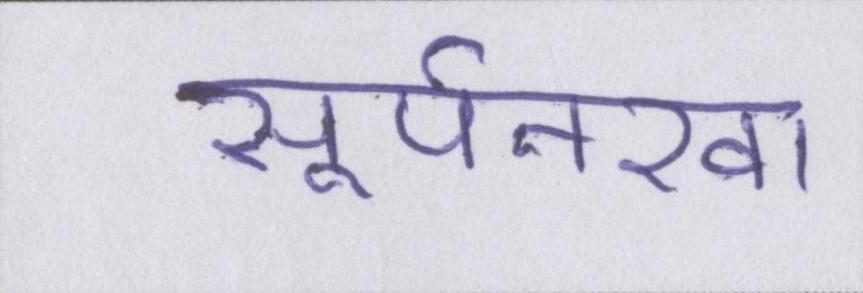 सूर्पनखा